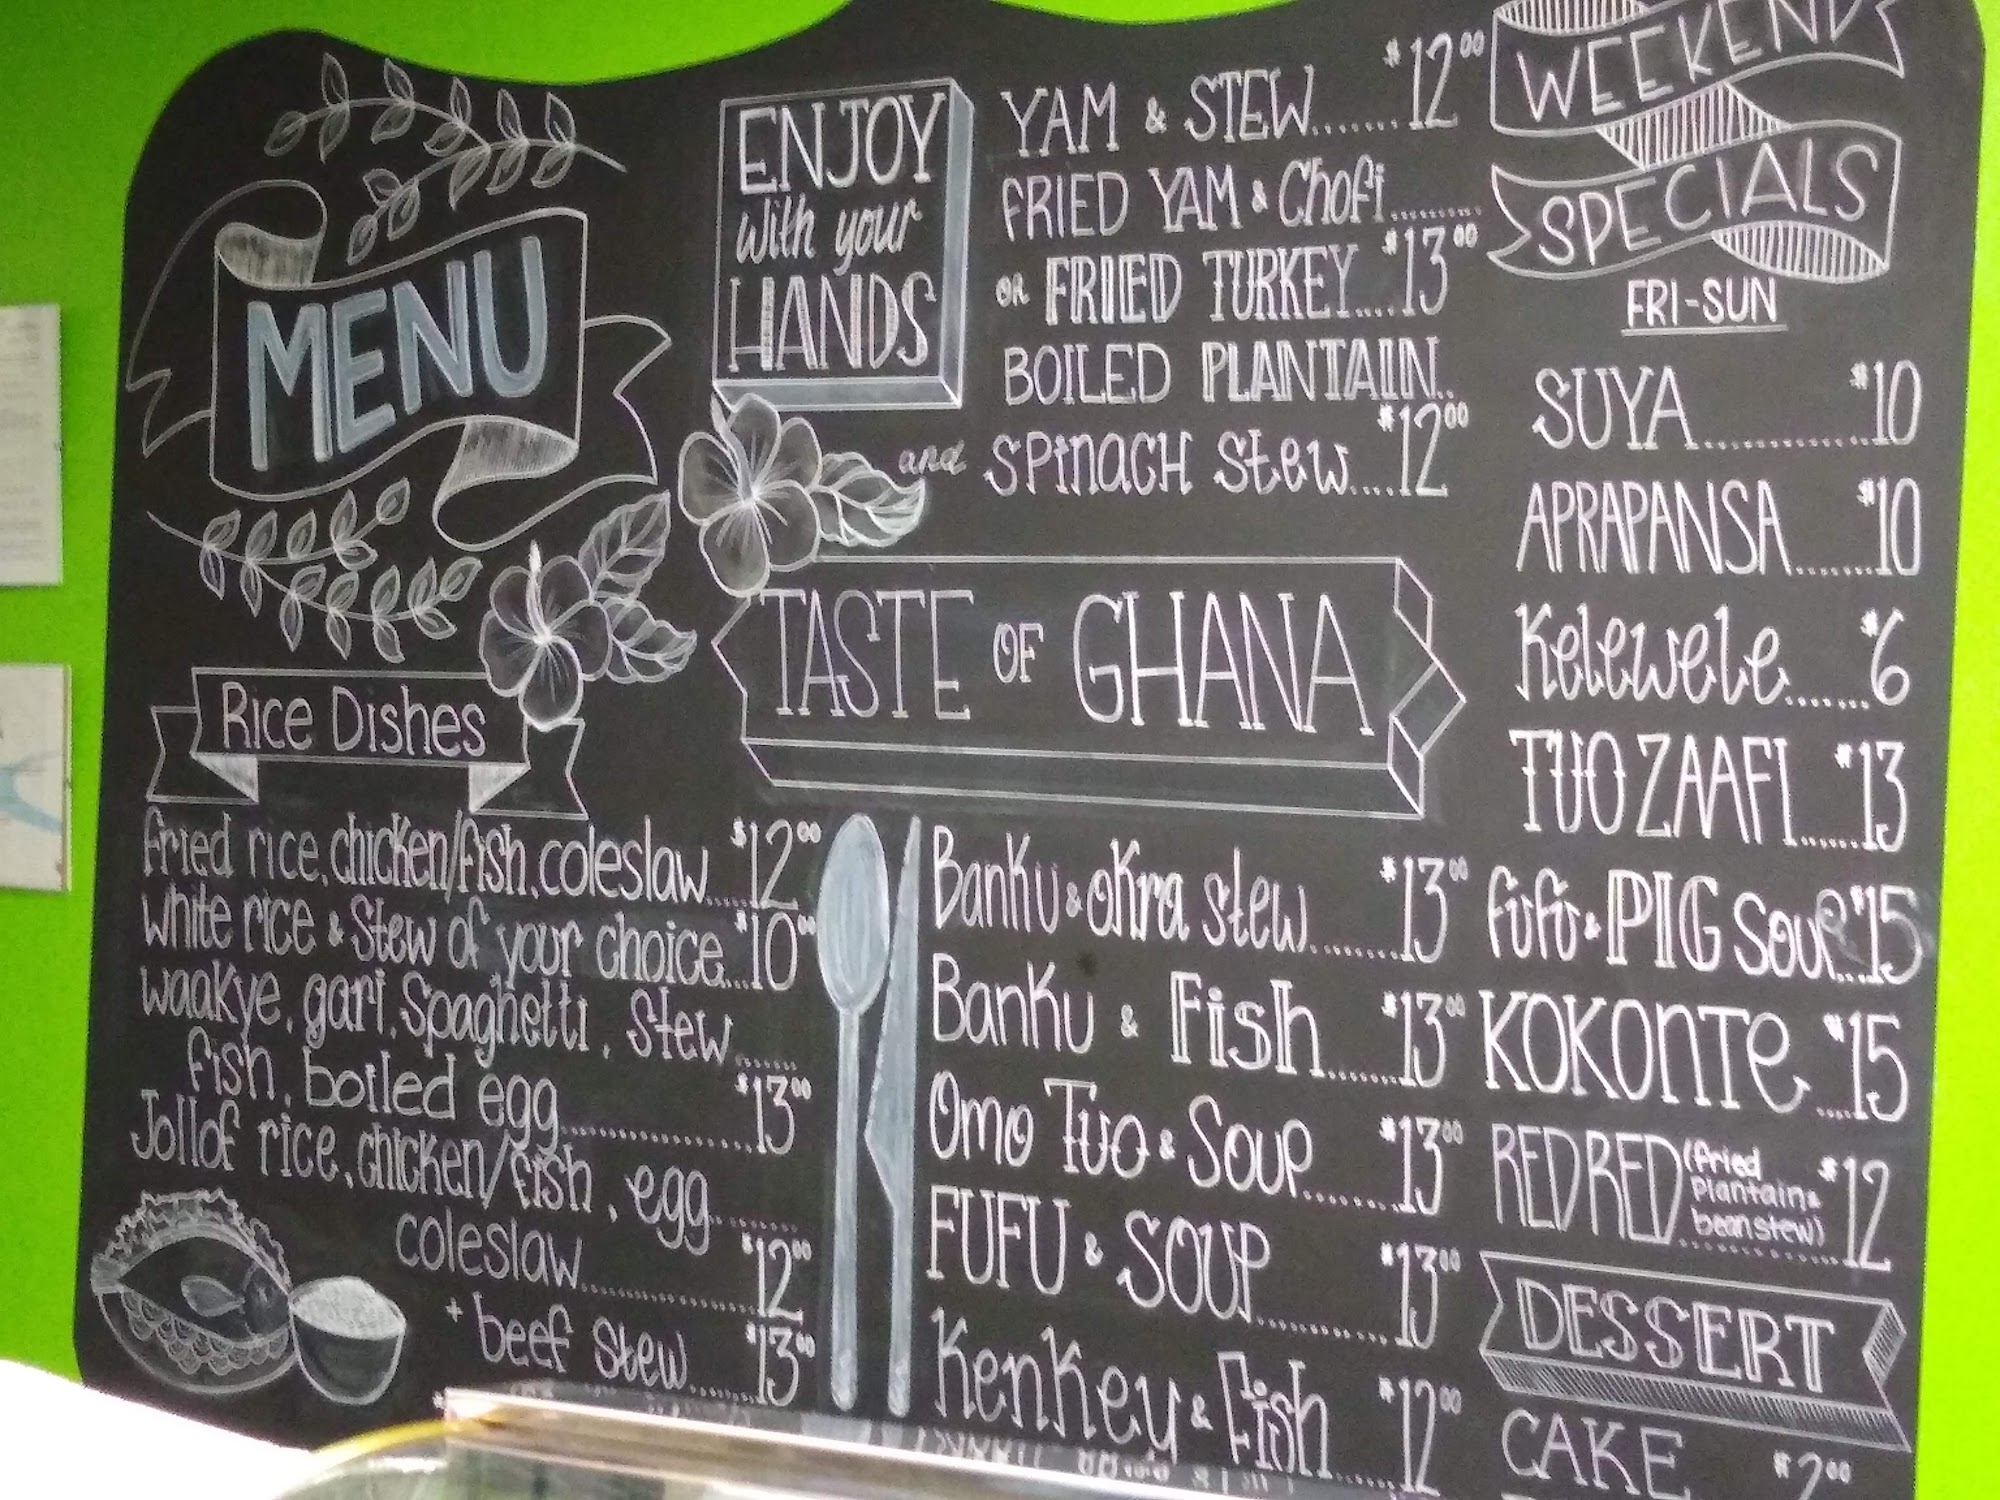 MENU
Rice Dishes
fried rice, chicken/fish, coleslaw....$12.00
white rice & stew of your choice...$10.00
waakye, gari, Spaghetti, stew......
fish, boiled egg..................$13.00
Jollof rice, chicken/fish, egg........
coleslaw................$12.00
+ beef stew.......$13.00
ENJOY
with your
HANDS
YAM & STEW.......$12.00
FRIED YAM & Chofi.........
OR FRIED TURKEY....$13.00
BOILED PLANTAIN..
and SPINACH stew....$12.00
TASTE OF GHANA
Banku & okra stew.......$13.00
Banku & Fish.......$13.00
Omo Tuo & Soup.......$13.00
FUFU & SOUP...........$13.00
Kenkey & Fish....$12.00
WEEKEND
SPECIALS
FRI-SUN
SUYA............$10
APRAPANSA.......$10
Kelewele.......$6
TUO ZAAFI......$13
fufu & PIG Soup...$15
KOKONTe....$15
RED RED (fried
plantain &
bean stew)..........$12
DESSERT
CAKE $2.00